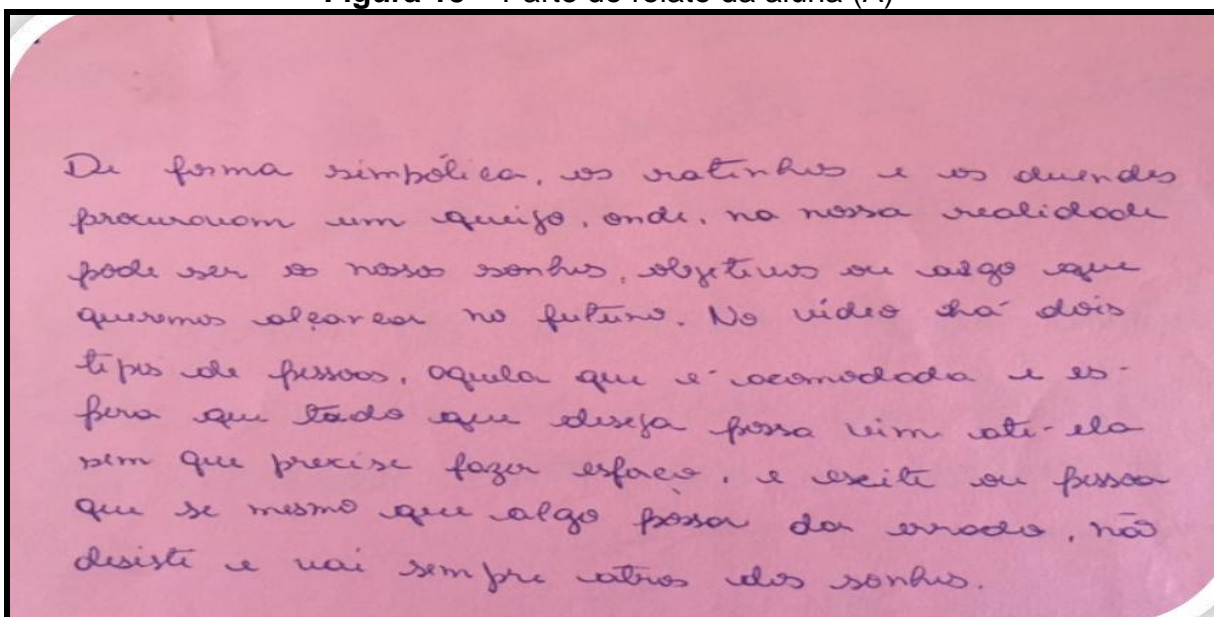 Figura 18 – Parte do relato da aluna (A)
De forma simbólica, os ratinhos e os duendes
procuravam um queijo, onde, na nossa realidade
pode ser os nosos sonhos, objetivos ou algo que
queremos alcançar no futuro. No vídeo há dois
tipos de pessoas, aquela que é acomodada e es-
pera que tado que deseja possa vim até-ela
sem que precise fazer esfoço, e exite ou pessoa
que se mesmo que algo possa dar errado, não
desiste e vai sempre atras dos sonhos.